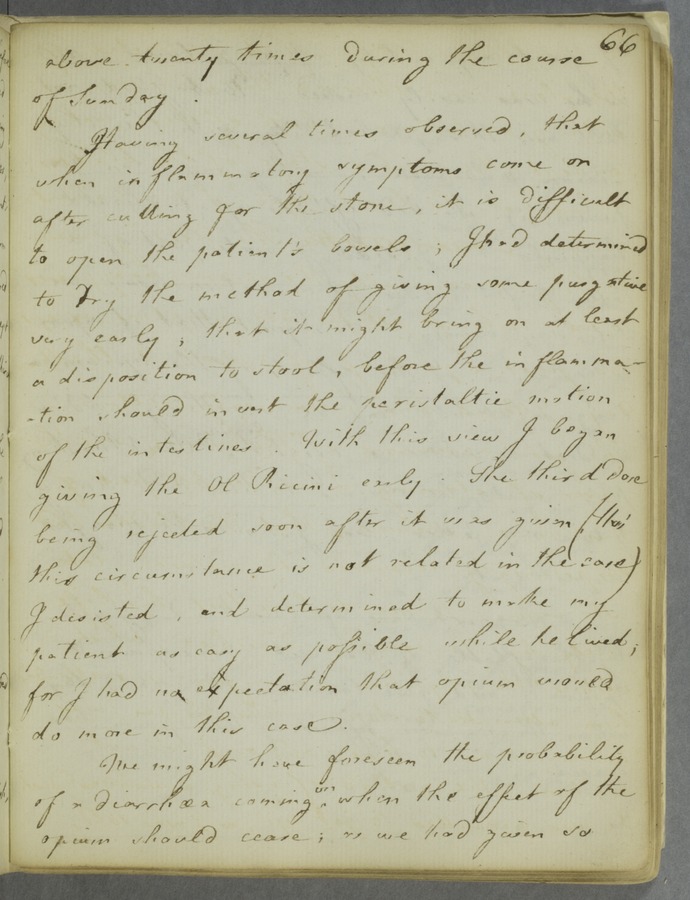 66
above twenty times During the course
of Sunday.
Having several times observed, that
when inflammatory symptoms come on
after cutting for the stone, it is difficult
to open the patient's bowels; I had determined
to try the method of giving some purgative
very early; that it might bring on at least
a disposition to stool, before the inflamma-
-tion should invert the peristaltic motion
of the intestines. With this view I began
giving the Ol Riccini early. The third Dose
being rejected soon after it was given (tho'
this circumstance is not related in the case)
I desisted, and determined to make my
patient as easy as possible while he lived;
for I had no expectation that opium would
do more in this case.
We might have foreseen the probability
of a Diarrhæa coming on, when the effect of the
opium should cease; as we had given so